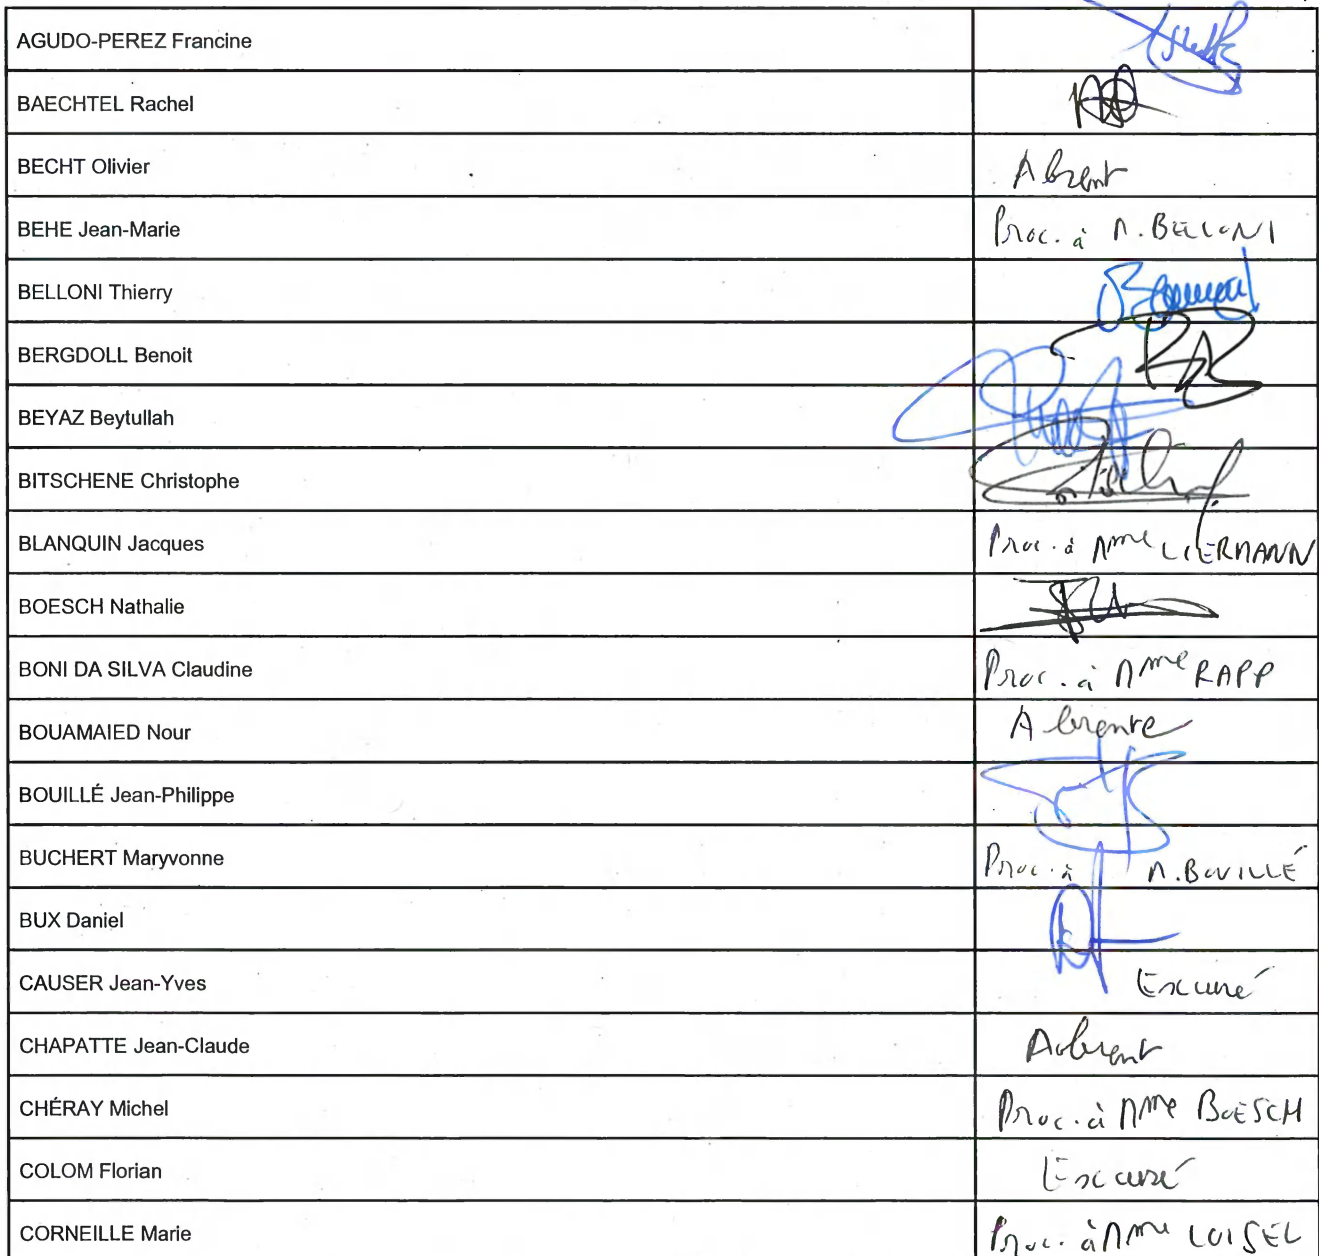 AGUDO-PEREZ Francine
BAECHTEL Rachel
BECHT Olivier Absent
BEHE Jean-Marie Proc. à M. BELLONI
BELLONI Thierry
BERGDOLL Benoit
BEYAZ Beytullah
BITSCHENE Christophe
BLANQUIN Jacques Proc. à Mme
BOESCH Nathalie
BONI DA SILVA Claudine Proc. à Mme RAPP
BOUAMAIED Nour Absente
BOUILLÉ Jean-Philippe
BUCHERT Maryvonne Proc. à M. BOUILLÉ
BUX Daniel
CAUSER Jean-Yves Excusé
CHAPATTE Jean-Claude Absent
CHÉRAY Michel Proc. à Mme BOESCH
COLOM Florian Excusé
CORNEILLE Marie Proc. à Mme LOISEL